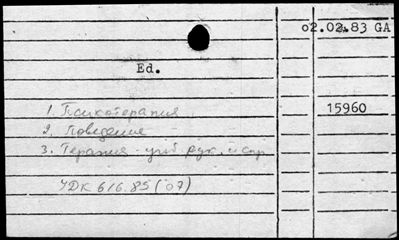 02.02.83 GA
Ed.
15960
1. Психотерапия
2. Поведение
3. Терапия - учеб. рук. и спр.
УДК 616.85 (07)